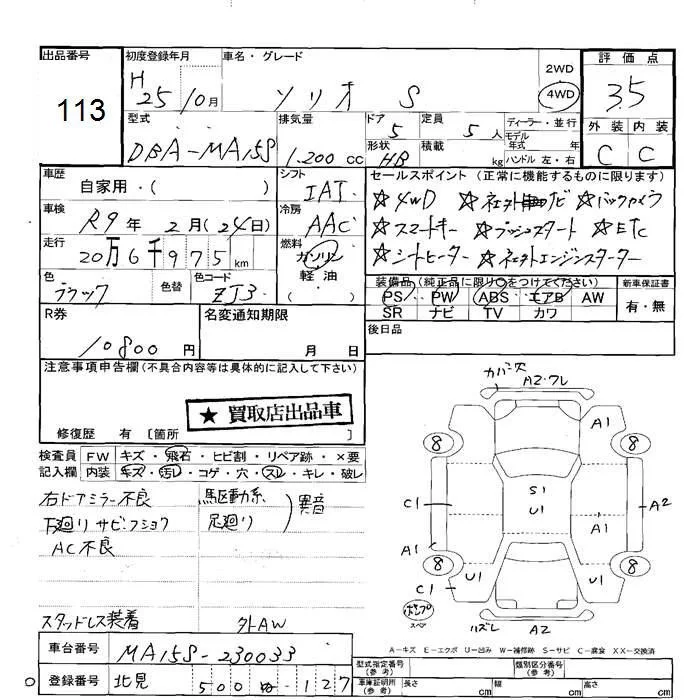 出品番号
113
初度登録年月
H 25 10 月
車名・グレード
ソリオ S
2WD
4WD
評価点
3.5
外装 内装
C C
型式
DBA-MA15S
排気量
1.200 cc
ドア
5
定員
5 人
形状
HB
積載
kg
ディーラー・並行
モデル
年式 年
ハンドル 左・右
車歴
自家用・( )
シフト
IAT
セールスポイント (正常に機能するものに限ります)
☆4WD ☆社外ナビ ☆バックカメラ
☆スマートキー ☆プッシュスタート ☆ETC
☆シートヒーター ☆社外エンジンスターター
車検
R9 年 2 月 (24 日)
冷房
AAC
走行
20万6千975 km
燃料
ガソリン
軽油
色
ブラック
色替
色コード
ZJ3
装備品 (純正品に限り○をつけてください)
PS PW ABS エアB AW
SR ナビ TV カワ
新車保証書
有・無
R券
10800 円
名変通知期限
月 日
後日品
注意事項申告欄 (不具合内容等は具体的に記入して下さい)
★ 買取店出品車
修復歴 有 〔箇所 〕
検査員 記入欄
FW キズ・飛石・ヒビ割・リペア跡・×要
内装 キズ・汚レ・コゲ・穴・スレ・キレ・破レ
右ドアミラー不良
下廻りサビ・フショク
AC不良
駆動系
足廻り
異音
スタッドレス装着
外AW
カバー欠
A2・ワレ
A1
8
8
S1
U1
C1
A1
A2
A1
8
8
C1
U1
U1
ポンプ
スペア
ハズレ
A2
A-キズ E-エクボ U-凹み W-補修跡 S-サビ C-腐食 XX-交換済
車台番号
MA15S-230033
登録番号
北見 500 ゆ -127
型式指定番号
(参考)
類別区分番号
(参考)
車庫証明所
(参考)
長さ cm
幅 cm
高さ cm